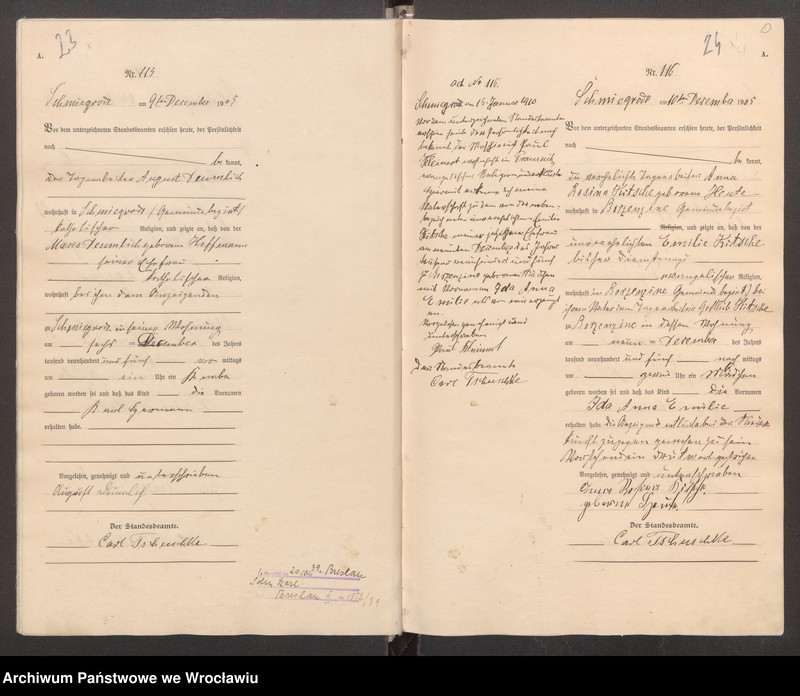 23
A.
Nr. 115
Schmiegrode am 9ten December 1905
Vor dem unterzeichneten Standesbeamten erschien heute, der Persönlichkeit
nach
be kannt,
Der Tagearbeiter August Deumlich
wohnhaft in Schmiegrode Gemeindebezirk
katholischer Religion, und zeigte an, daß von der
Maria Deumlich geborenen Hoffmann
seiner Ehefrau
katholischer Religion,
wohnhaft bei ihm dem Anzeigenden
zu Schmiegrode in seiner Wohnung
am sechs ten December des Jahres
tausend neunhundert und fünf mittags
um ein Uhr ein Knabe
geboren worden sei und daß das Kind die Vornamen
Karl Hermann
erhalten habe.
Vorgelesen, genehmigt und unterschrieben
August Deumlich
Der Standesbeamte.
Carl Tschuschke
39 Breslau
Karl
Breslau
ad No 116.
Schmiegrode am 15 Januar 1910
Vor dem unterzeichneten Standesbeamten
erschien heute der Persönlichkeit nach
bekannt, der Paul
Kleinert wohnhaft in
evangelischer Religion und
meine
Vaterschaft zu dem von der neben
bezeichneten unverehelichten Emilie
Kitsche meiner jetzigen Ehefrau
am neunten December des Jahres
tausend neunhundert und fünf
zu Borzenzine geborenen Mädchen
mit Vornamen Ida Anna
Emilie als von mir erzeugt
an.
Vorgelesen genehmigt und
unterschrieben
Paul Kleinert
Der Standesbeamte
Carl Tschuschke
24
A.
Nr. 116
Schmiegrode am 10ten December 1905
Vor dem unterzeichneten Standesbeamten erschien heute, der Persönlichkeit
nach
be kannt,
Die verehelichte Tagearbeiter Anna
Rosina Kitsche geborene Heute
wohnhaft in Borzenzine Gemeindebezirk
Religion, und zeigte an, daß von der
unverehelichten Emilie Kitsche
bisher Dienstmagd
evangelischer Religion,
wohnhaft in Borzenzine Gemeindebezirk bei
ihrem Vater dem Tagearbeiter Gottlieb Kitsche
zu Borzenzine in dessen Wohnung
am neun ten December des Jahres
tausend neunhundert und fünf nach mittags
um Uhr ein Mädchen
geboren worden sei und daß das Kind die Vornamen
Ida Anna Emilie
erhalten habe. die Anzeigende erklärte bei der Nieder
kunft zugegen gewesen zu sein
Vorstehend ein Druckwort gestrichen
Vorgelesen, genehmigt und unterschrieben
Anna Rosina Kitsche
geborene Heute
Der Standesbeamte.
Carl Tschuschke
Archiwum Państwowe we Wrocławiu